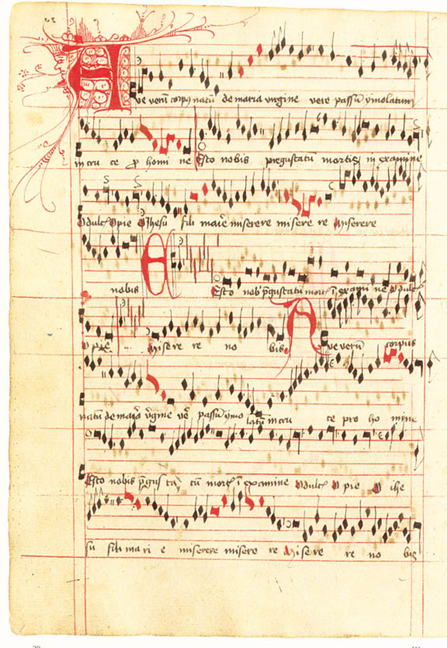 Ave verū corpꝯ natū de maria virgine vere passū ymolatum
in cru ce p̱ homi ne Esto nobis pregustatū mortis in examine
O dulcꝭ O pie O Ihesu fili marie miserere misere re Miserere
nobis Esto nob̄ p̄gustatū mortꝭ ī exami ne O dulcꝭ
O pie Misere re no bis Ave verū corpus
natū de maria v̄gine ve passū ymo latū in cru ce pro ho mine
Esto nobis p̄gus ta tū mortꝭ ī examine O dulcꝭ O pie O ihe
su fili ma ri e miserere misere re Mise re re no bis